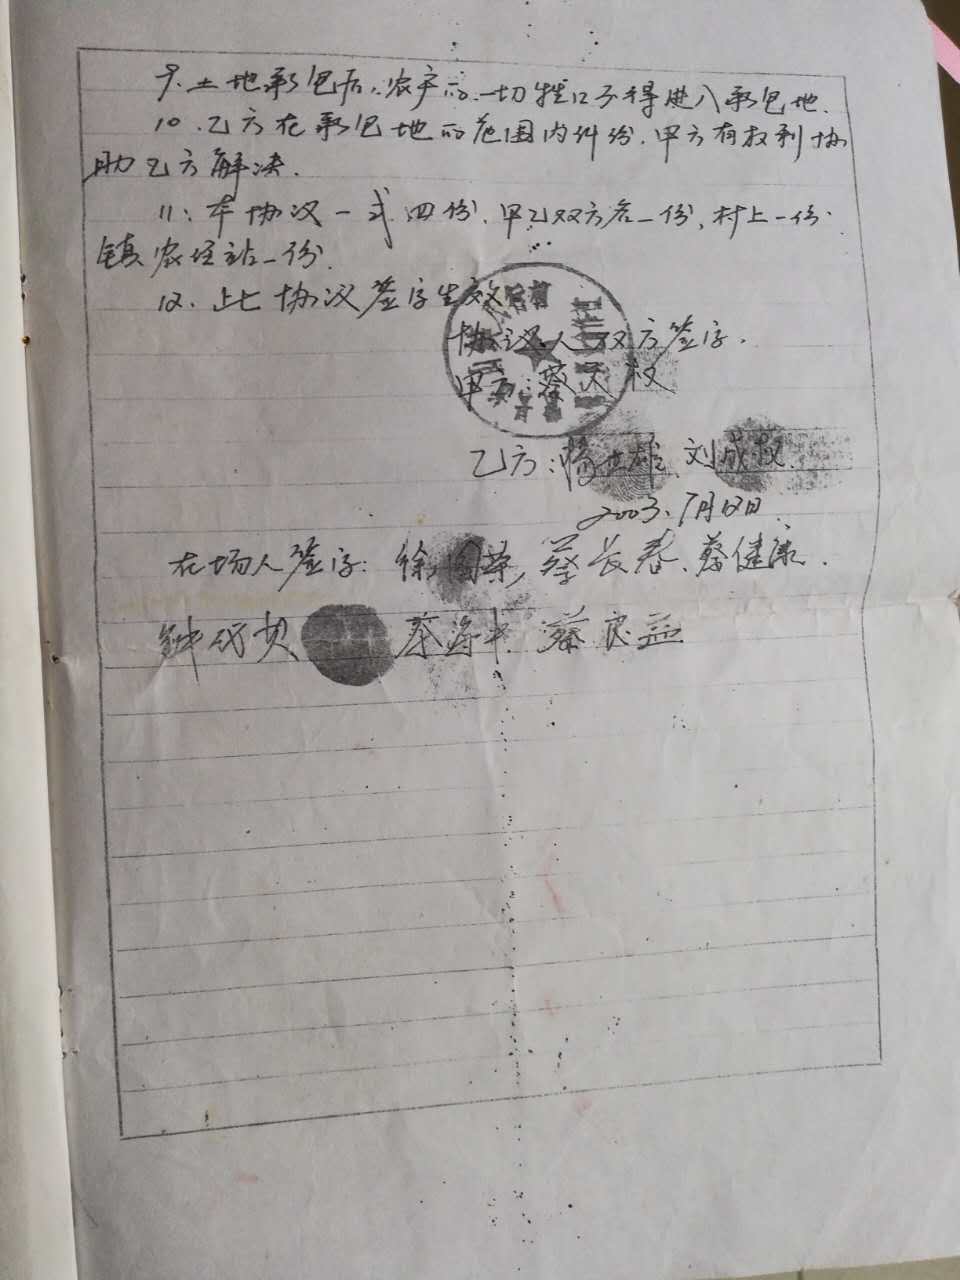 9、土地承包后、农户的一切牲口不得进入承包地.
10、乙方在承包地的范围内纠纷.甲方有权利协
助乙方解决.
11、本协议一式四份.甲乙双方各一份,村上一份.
镇农经站一份.
12、此协议签字生效
协议人双方签字.
甲方:蔡天权
乙方:杨世雄、刘成权.
2003.1月12日
在场人签字:徐国荣,蔡长春、蔡健康.
钟 蔡海 蔡良益